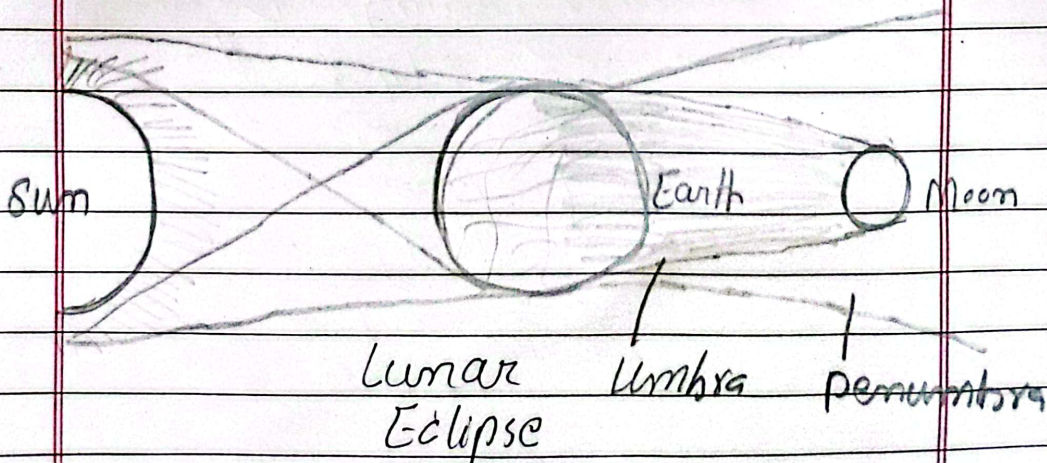 Sun
Earth
Moon
Lunar
Eclipse
Umbra
Penumbra